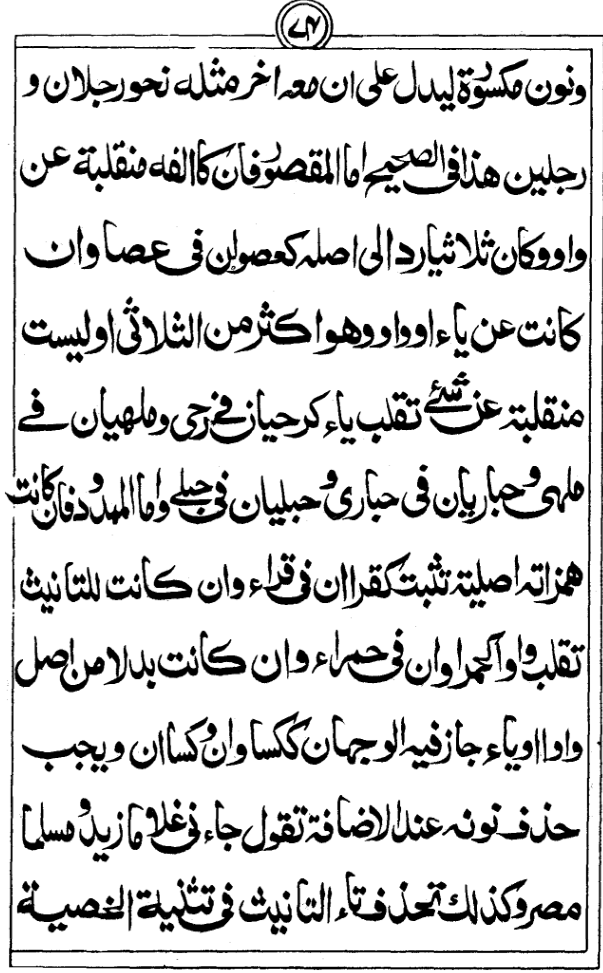 ٧٤
ونون مكسورة ليدل على ان معه اخر مثله نحو رجلان و
رجلين هذا فى الصحيح اما المقصور فان كا الفه منقلبة عن
واو وكان ثلاثيا رد الى اصله كعصوان فى عصا وان
كانت عن ياء او واو وهو اكثر من الثلاثى او ليست
منقلبة عن شئے تقلب ياء كرحيان فے رحى وملهيان فے
ملهى وحباريان فى حبارى وحبليان فى حبلے واما الممدود فان كانت
همزاته اصلية تثبت كقراان فى قراء وان كانت للتانيث
تقلب واوا كحمراوان فى حمراء وان كانت بدلا من اصل
واوا او ياء جاز فيه الوجهان ككساوان وكساان ويجب
حذف نونه عند الاضافة تقول جاءنى غلاما زيد ومسلما
مصر وكذلك تحذف تاء التانيث فى تثنية الخصية